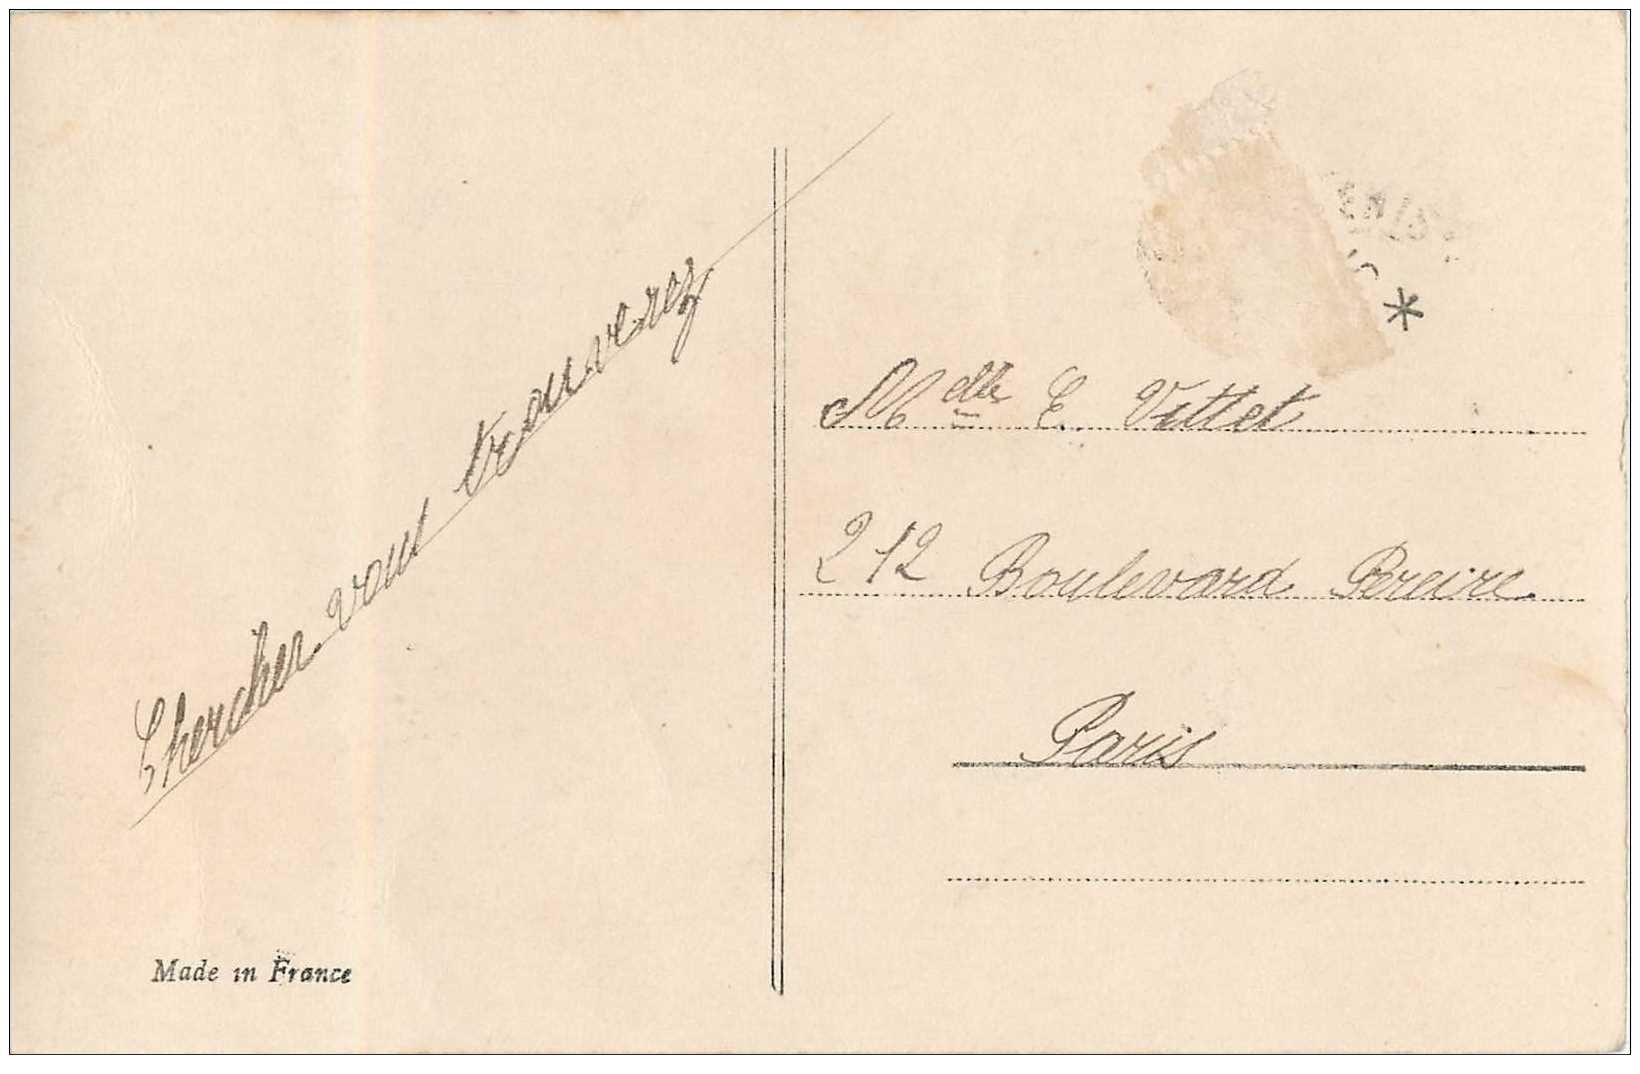 Chercher vous trouverez
Mdlle E. Vittet
212 Boulevard Pereire
Paris
Made in France